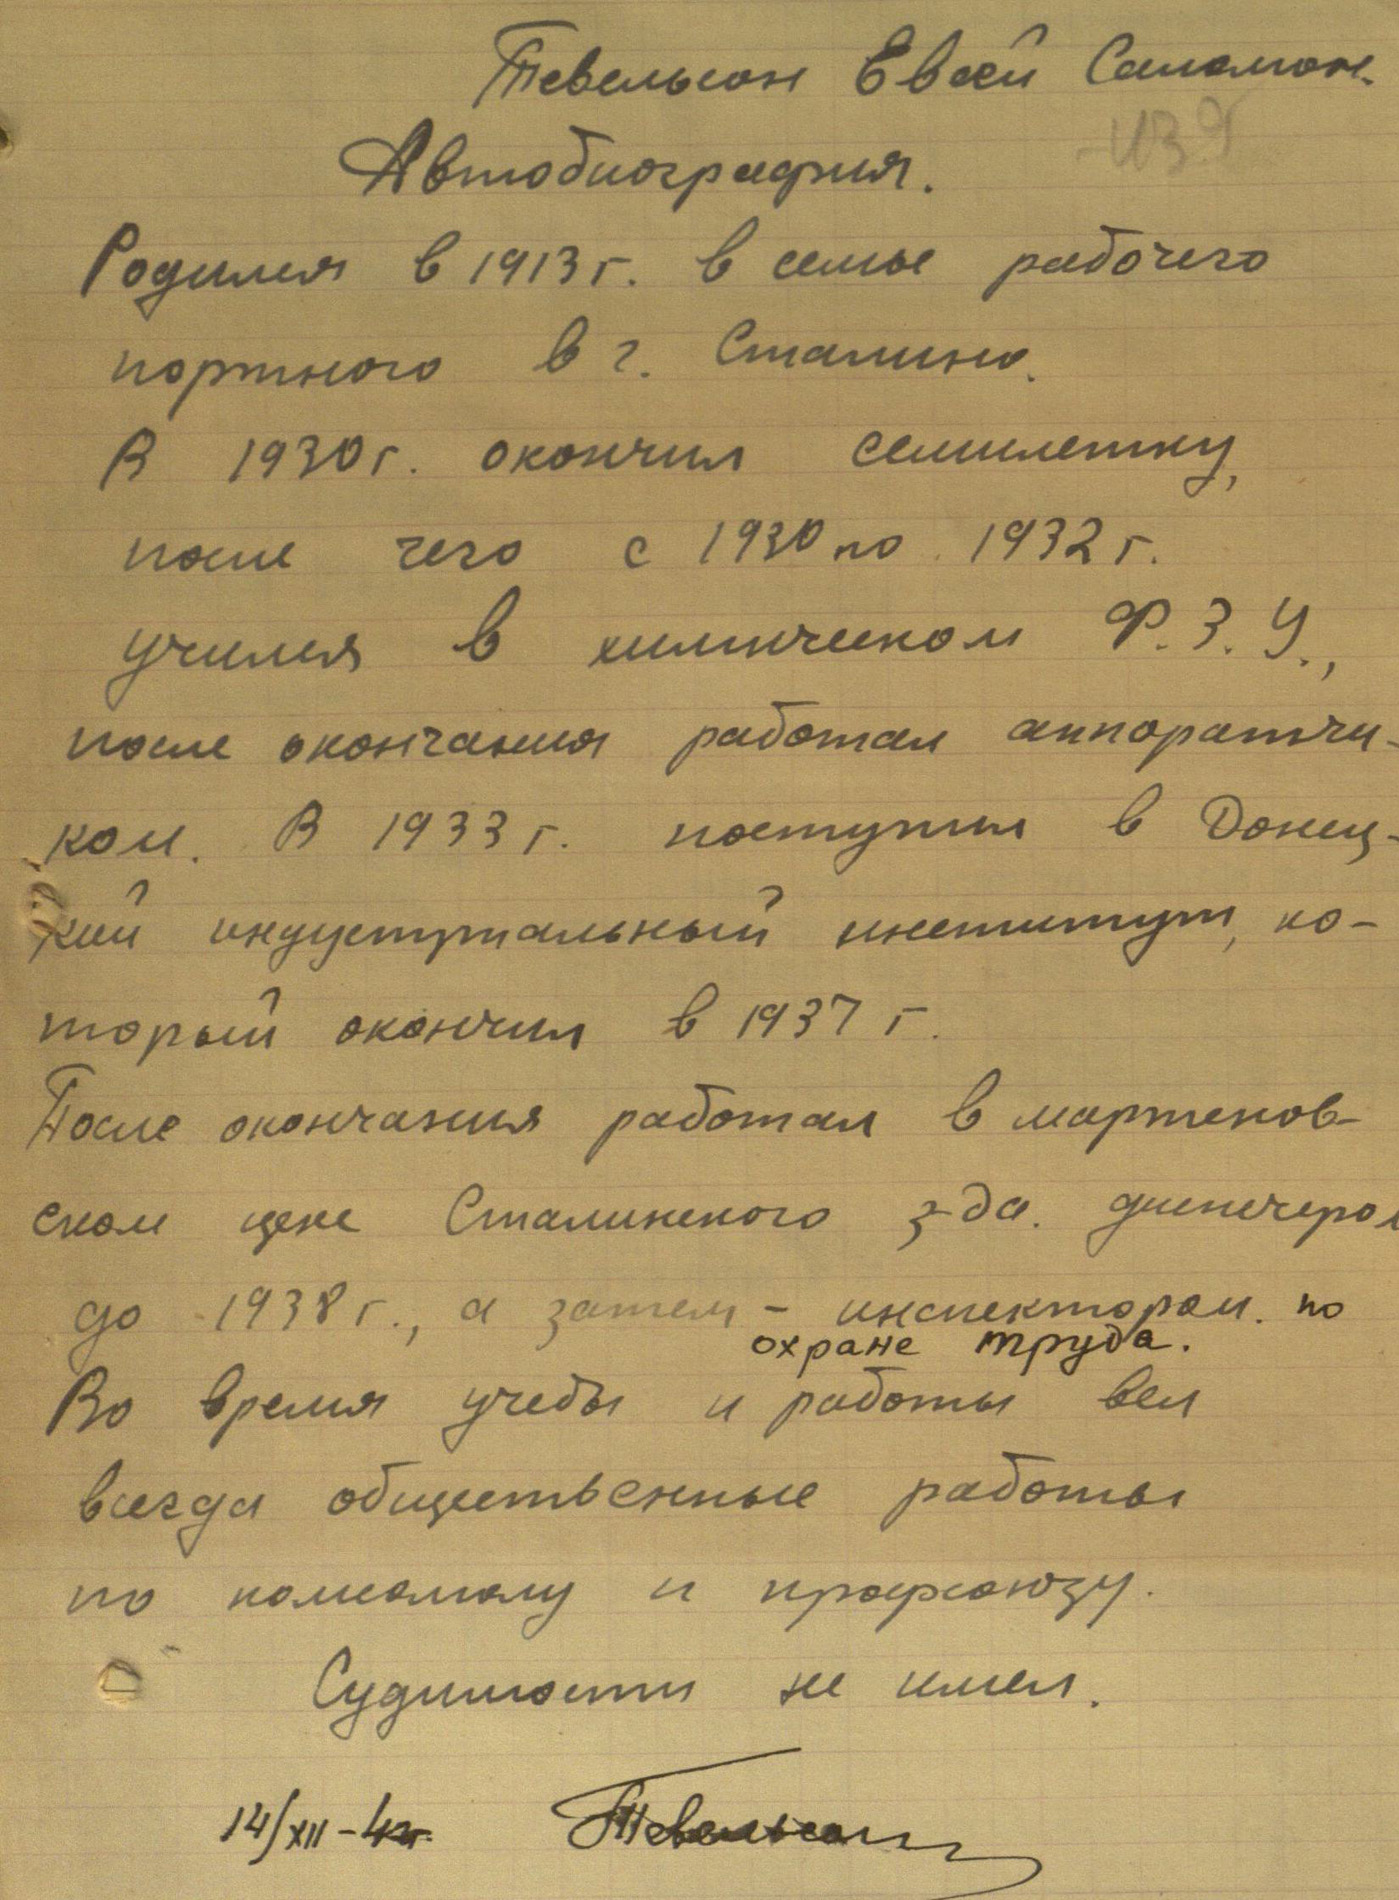 Тевельсон Евсей Саломон.
Автобиография.
Родился в 1913 г. в семье рабочего
портного в г. Сталино.
В 1930 г. окончил семилетку,
после чего с 1930 по 1932 г.
учился в химическом Ф.З.У.,
после окончания работал аппоратчи-
ком. В 1933 г. поступил в Донец-
кий индустриальный институт, ко-
торый окончил в 1937 г.
После окончания работал в мартенов-
ском цехе Сталинского з-да. диспечером
до 1938 г., а затем - инспектором. по
охране труда.
Во время учебы и работы вел
всегда общественные работы
по комсомолу и профсоюзу.
Судимости не имел.
14/XII-42г. Тевельсон